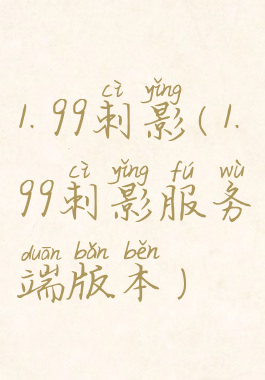 cì yǐng
1.99刺影(1.
cì yǐng fú wù
99刺影服务
duān bǎn běn
端版本)